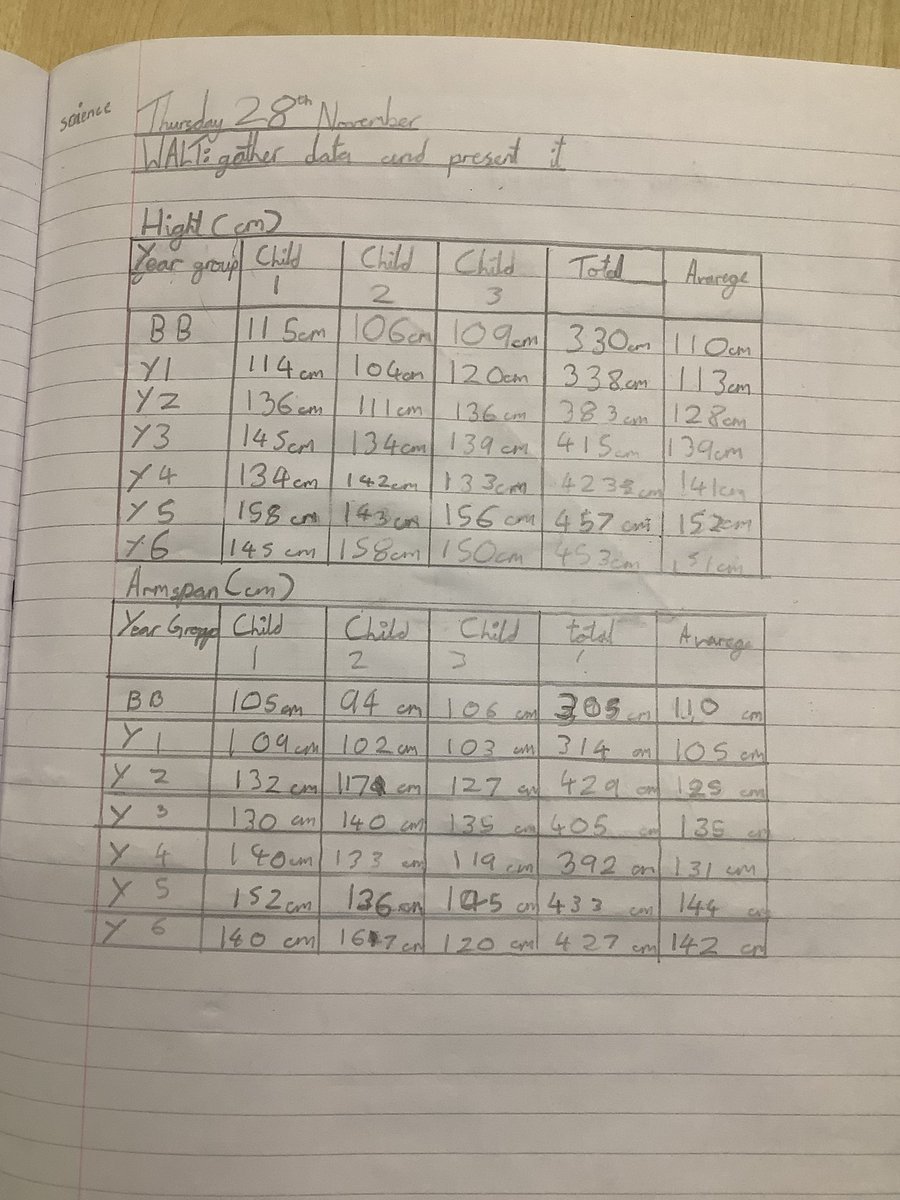 science
Thursday 28th November
WALT: gather data and present it
Hight (cm)
Year group Child 1 Child 2 Child 3 Total Avarege
BB 115cm 106cm 109cm 330cm 110cm
Y1 114cm 104cm 120cm 338cm 113cm
Y2 136cm 111cm 136cm 383cm 128cm
Y3 145cm 134cm 139cm 415cm 139cm
Y4 134cm 142cm 133cm 141cm
Y5 158cm 143cm 156cm 457cm 152cm
Y6 145cm 158cm 150cm 453cm 151cm
Armspan (cm)
Year Child 1 Child 2 Child 3 total Avarege
BB 105cm 94 cm 106 cm 305 cm 110 cm
Y1 109cm 102 cm 103 cm 314 cm 105 cm
Y 2 132 cm 117 cm 127 cm 429 cm 125 cm
Y 3 130 cm 140 cm 135 cm 405 cm 135 cm
Y 4 140cm 133 cm 119 cm 392 cm 131 cm
Y 5 152cm 136 cm 145 cm 433 cm 144 cm
Y 6 140 cm 167 cm 120 cm 427 cm 142 cm